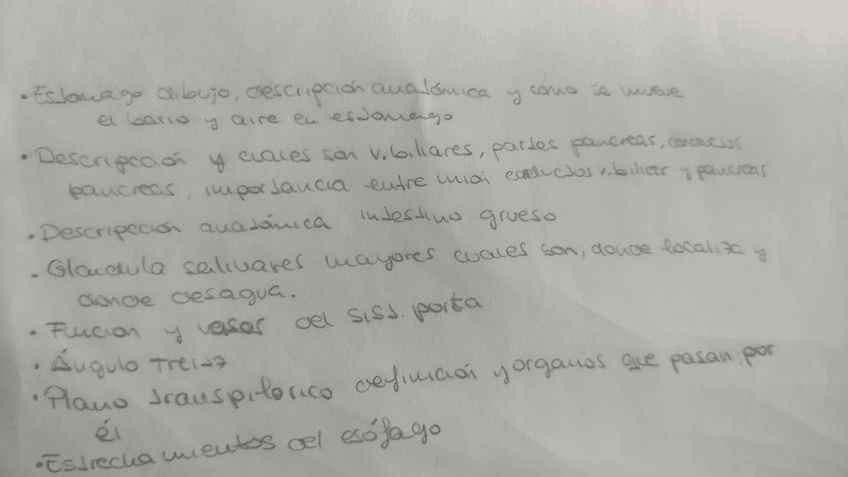 • Estomago dibujo, descripción anatómica y cómo se mueve
el bario y aire en estomago
• Descripción y cuales son v.biliares, partes pancreas, conductos
pancreas, importancia entre unión conductos v.biliar y pancreas
• Descripción anatómica intestino grueso
• Glandula salivares mayores cuales son, donde localiza y
donde desagua.
• Función y vasos del sist. porta
• Ángulo Treitz
• Plano transpilorico definición y organos que pasan por
él
• Estrechamientos del esófago